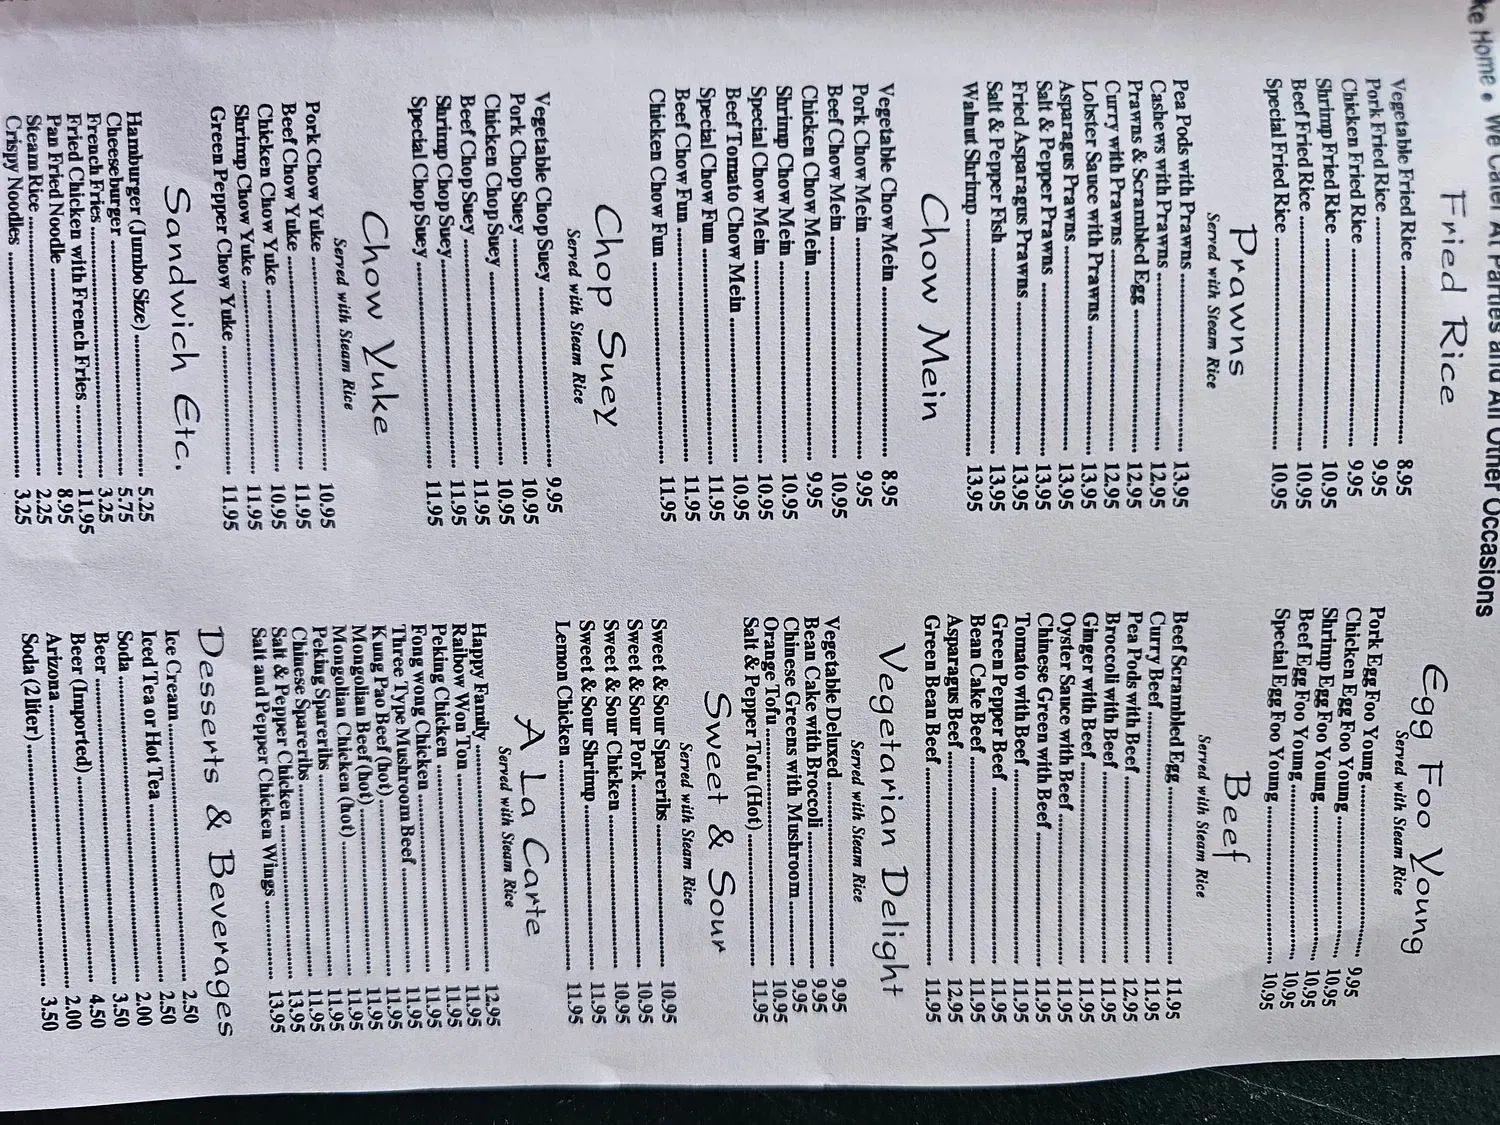 ke Home • We Cater At Parties and All Other Occasions
Fried Rice
Vegetable Fried Rice 8.95
Pork Fried Rice 9.95
Chicken Fried Rice 9.95
Shrimp Fried Rice 10.95
Beef Fried Rice 10.95
Special Fried Rice 10.95
Prawns
Served with Steam Rice
Pea Pods with Prawns 13.95
Cashews with Prawns 12.95
Prawns & Scrambled Egg 12.95
Curry with Prawns 12.95
Lobster Sauce with Prawns 13.95
Asparagus Prawns 13.95
Salt & Pepper Prawns 13.95
Fried Asparagus Prawns 13.95
Salt & Pepper Fish 13.95
Walnut Shrimp 13.95
Chow Mein
Vegetable Chow Mein 8.95
Pork Chow Mein 9.95
Beef Chow Mein 10.95
Chicken Chow Mein 9.95
Shrimp Chow Mein 10.95
Special Chow Mein 10.95
Beef Tomato Chow Mein 10.95
Special Chow Fun 11.95
Beef Chow Fun 11.95
Chicken Chow Fun 11.95
Chop Suey
Served with Steam Rice
Vegetable Chop Suey 9.95
Pork Chop Suey 10.95
Chicken Chop Suey 10.95
Beef Chop Suey 11.95
Shrimp Chop Suey 11.95
Special Chop Suey 11.95
Chow Yuke
Served with Steam Rice
Pork Chow Yuke 10.95
Beef Chow Yuke 11.95
Chicken Chow Yuke 10.95
Shrimp Chow Yuke 11.95
Green Pepper Chow Yuke 11.95
Sandwich Etc.
Hamburger (Jumbo Size) 5.25
Cheeseburger 5.75
French Fries 3.25
Fried Chicken with French Fries 11.95
Pan Fried Noodle 8.95
Steam Rice 2.25
Crispy Noodles 3.25
Egg Foo Young
Served with Steam Rice
Pork Egg Foo Young 9.95
Chicken Egg Foo Young 10.95
Shrimp Egg Foo Young 10.95
Beef Egg Foo Young 10.95
Special Egg Foo Young 10.95
Beef
Served with Steam Rice
Beef Scrambled Egg 11.95
Curry Beef 11.95
Pea Pods with Beef 12.95
Broccoli with Beef 11.95
Ginger with Beef 11.95
Oyster Sauce with Beef 11.95
Chinese Green with Beef 11.95
Tomato with Beef 11.95
Green Pepper Beef 11.95
Bean Cake Beef 11.95
Asparagus Beef 12.95
Green Bean Beef 11.95
Vegetarian Delight
Served with Steam Rice
Vegetable Deluxed 9.95
Bean Cake with Broccoli 9.95
Chinese Greens with Mushroom 9.95
Orange Tofu 10.95
Salt & Pepper Tofu (Hot) 11.95
Sweet & Sour
Served with Steam Rice
Sweet & Sour Spareribs 10.95
Sweet & Sour Pork 10.95
Sweet & Sour Chicken 10.95
Sweet & Sour Shrimp 11.95
Lemon Chicken 11.95
A La Carte
Served with Steam Rice
Happy Family 12.95
Raibow Won Ton 11.95
Peking Chicken 11.95
Fong wong Chicken 11.95
Three Type Mushroom Beef 11.95
Kung Pao Beef (hot) 11.95
Mongolian Beef (hot) 11.95
Mongolian Chicken (hot) 11.95
Peking Spareribs 11.95
Chinese Spareribs 11.95
Salt & Pepper Chicken 13.95
Salt and Pepper Chicken Wings 13.95
Desserts & Beverages
Ice Cream 2.50
Iced Tea or Hot Tea 2.50
Soda 2.00
Beer 3.50
Beer (Imported) 4.50
Arizona 2.00
Soda (2 liter) 3.50